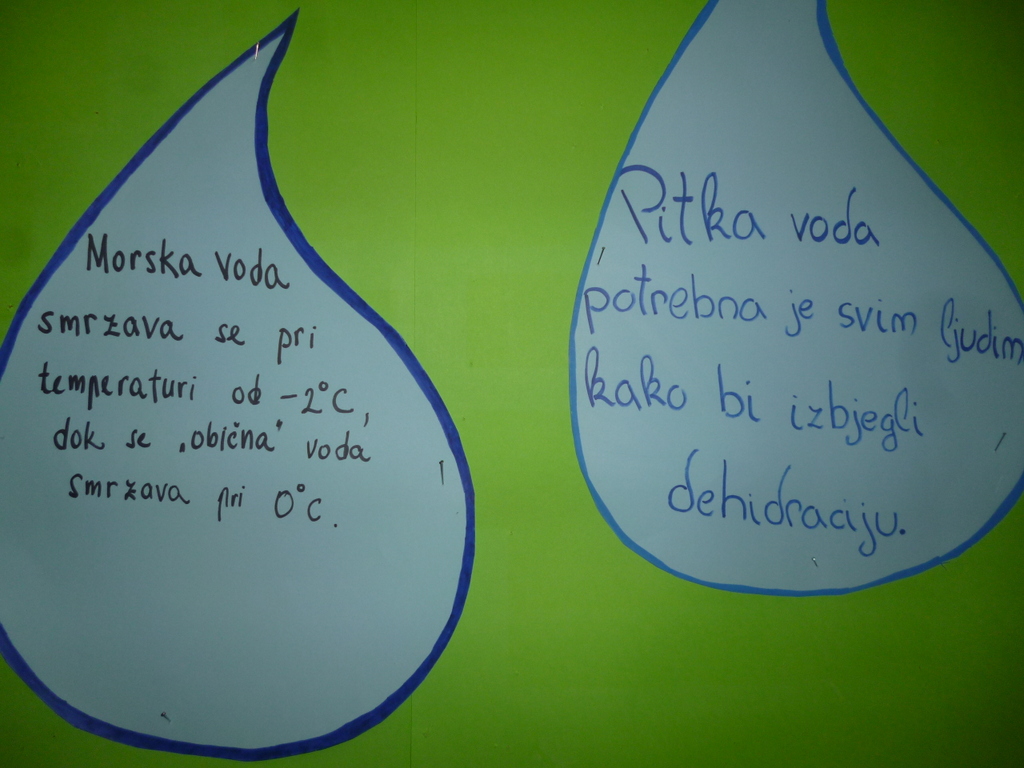 Morska voda
smrzava se pri
temperaturi od -2°C,
dok se „obična" voda
smrzava pri 0°C.
Pitka voda
potrebna je svim ljudima
kako bi izbjegli
dehidraciju.